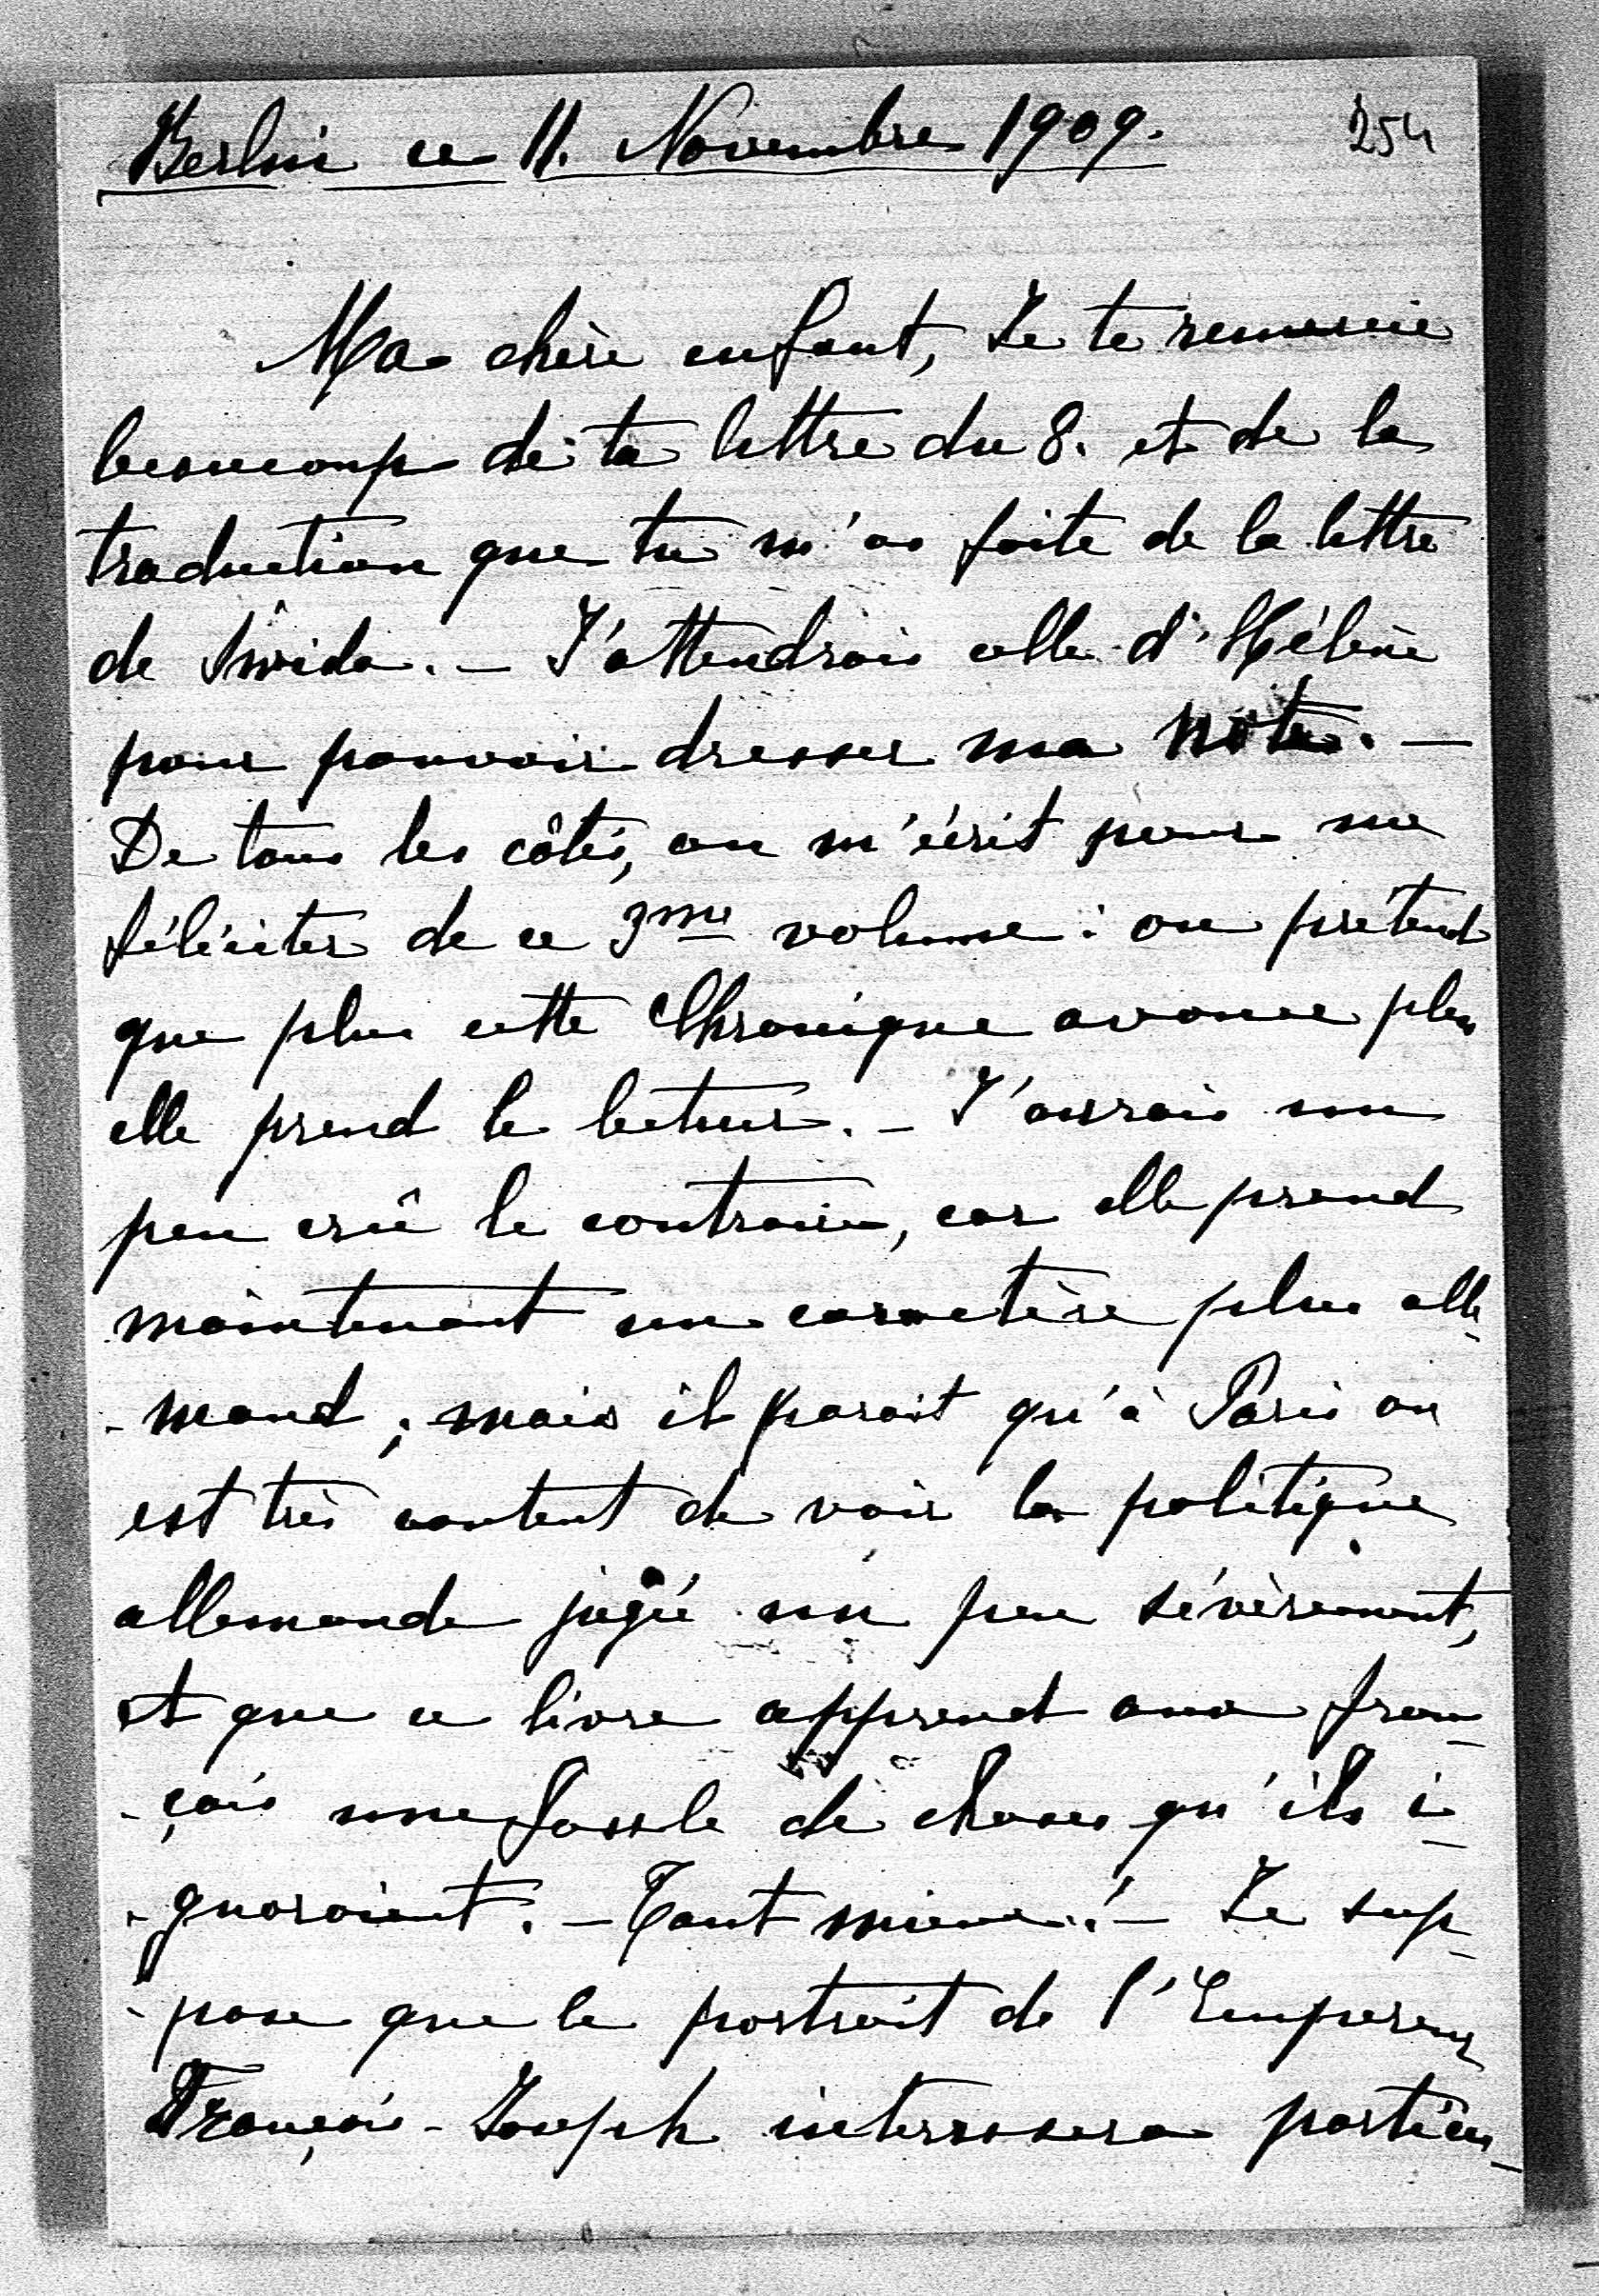 Berlin ce 11. Novembre 1909.
254
Ma chère enfant, Je te remercie
beaucoup de ta lettre du 8. et de la
traduction que tu m'as faite de la lettre
de . _ J'attendrais celle d'Hélène
pour pouvoir dresser ma note. _
De tous les côtés, on m'écrit pour me
féliciter de ce 3me volume : on prétend
que plus cette Chronique avance plus
elle prend le lecteur. _ J'aurais un
peu crû le contraire, car elle prend
maintenant un caractère plus alle-
-mand ; mais il parait qu'à Paris on
est très content de voir la politique
allemande jugé un peu sévèrement,
et que ce livre apprend aux fran-
-çais une foule de choses qu'ils i-
-gnoraient. _ Tant mieux ! _ Je sup-
-pose que le portrait de l'Empereur
François-Joseph interessera particu-